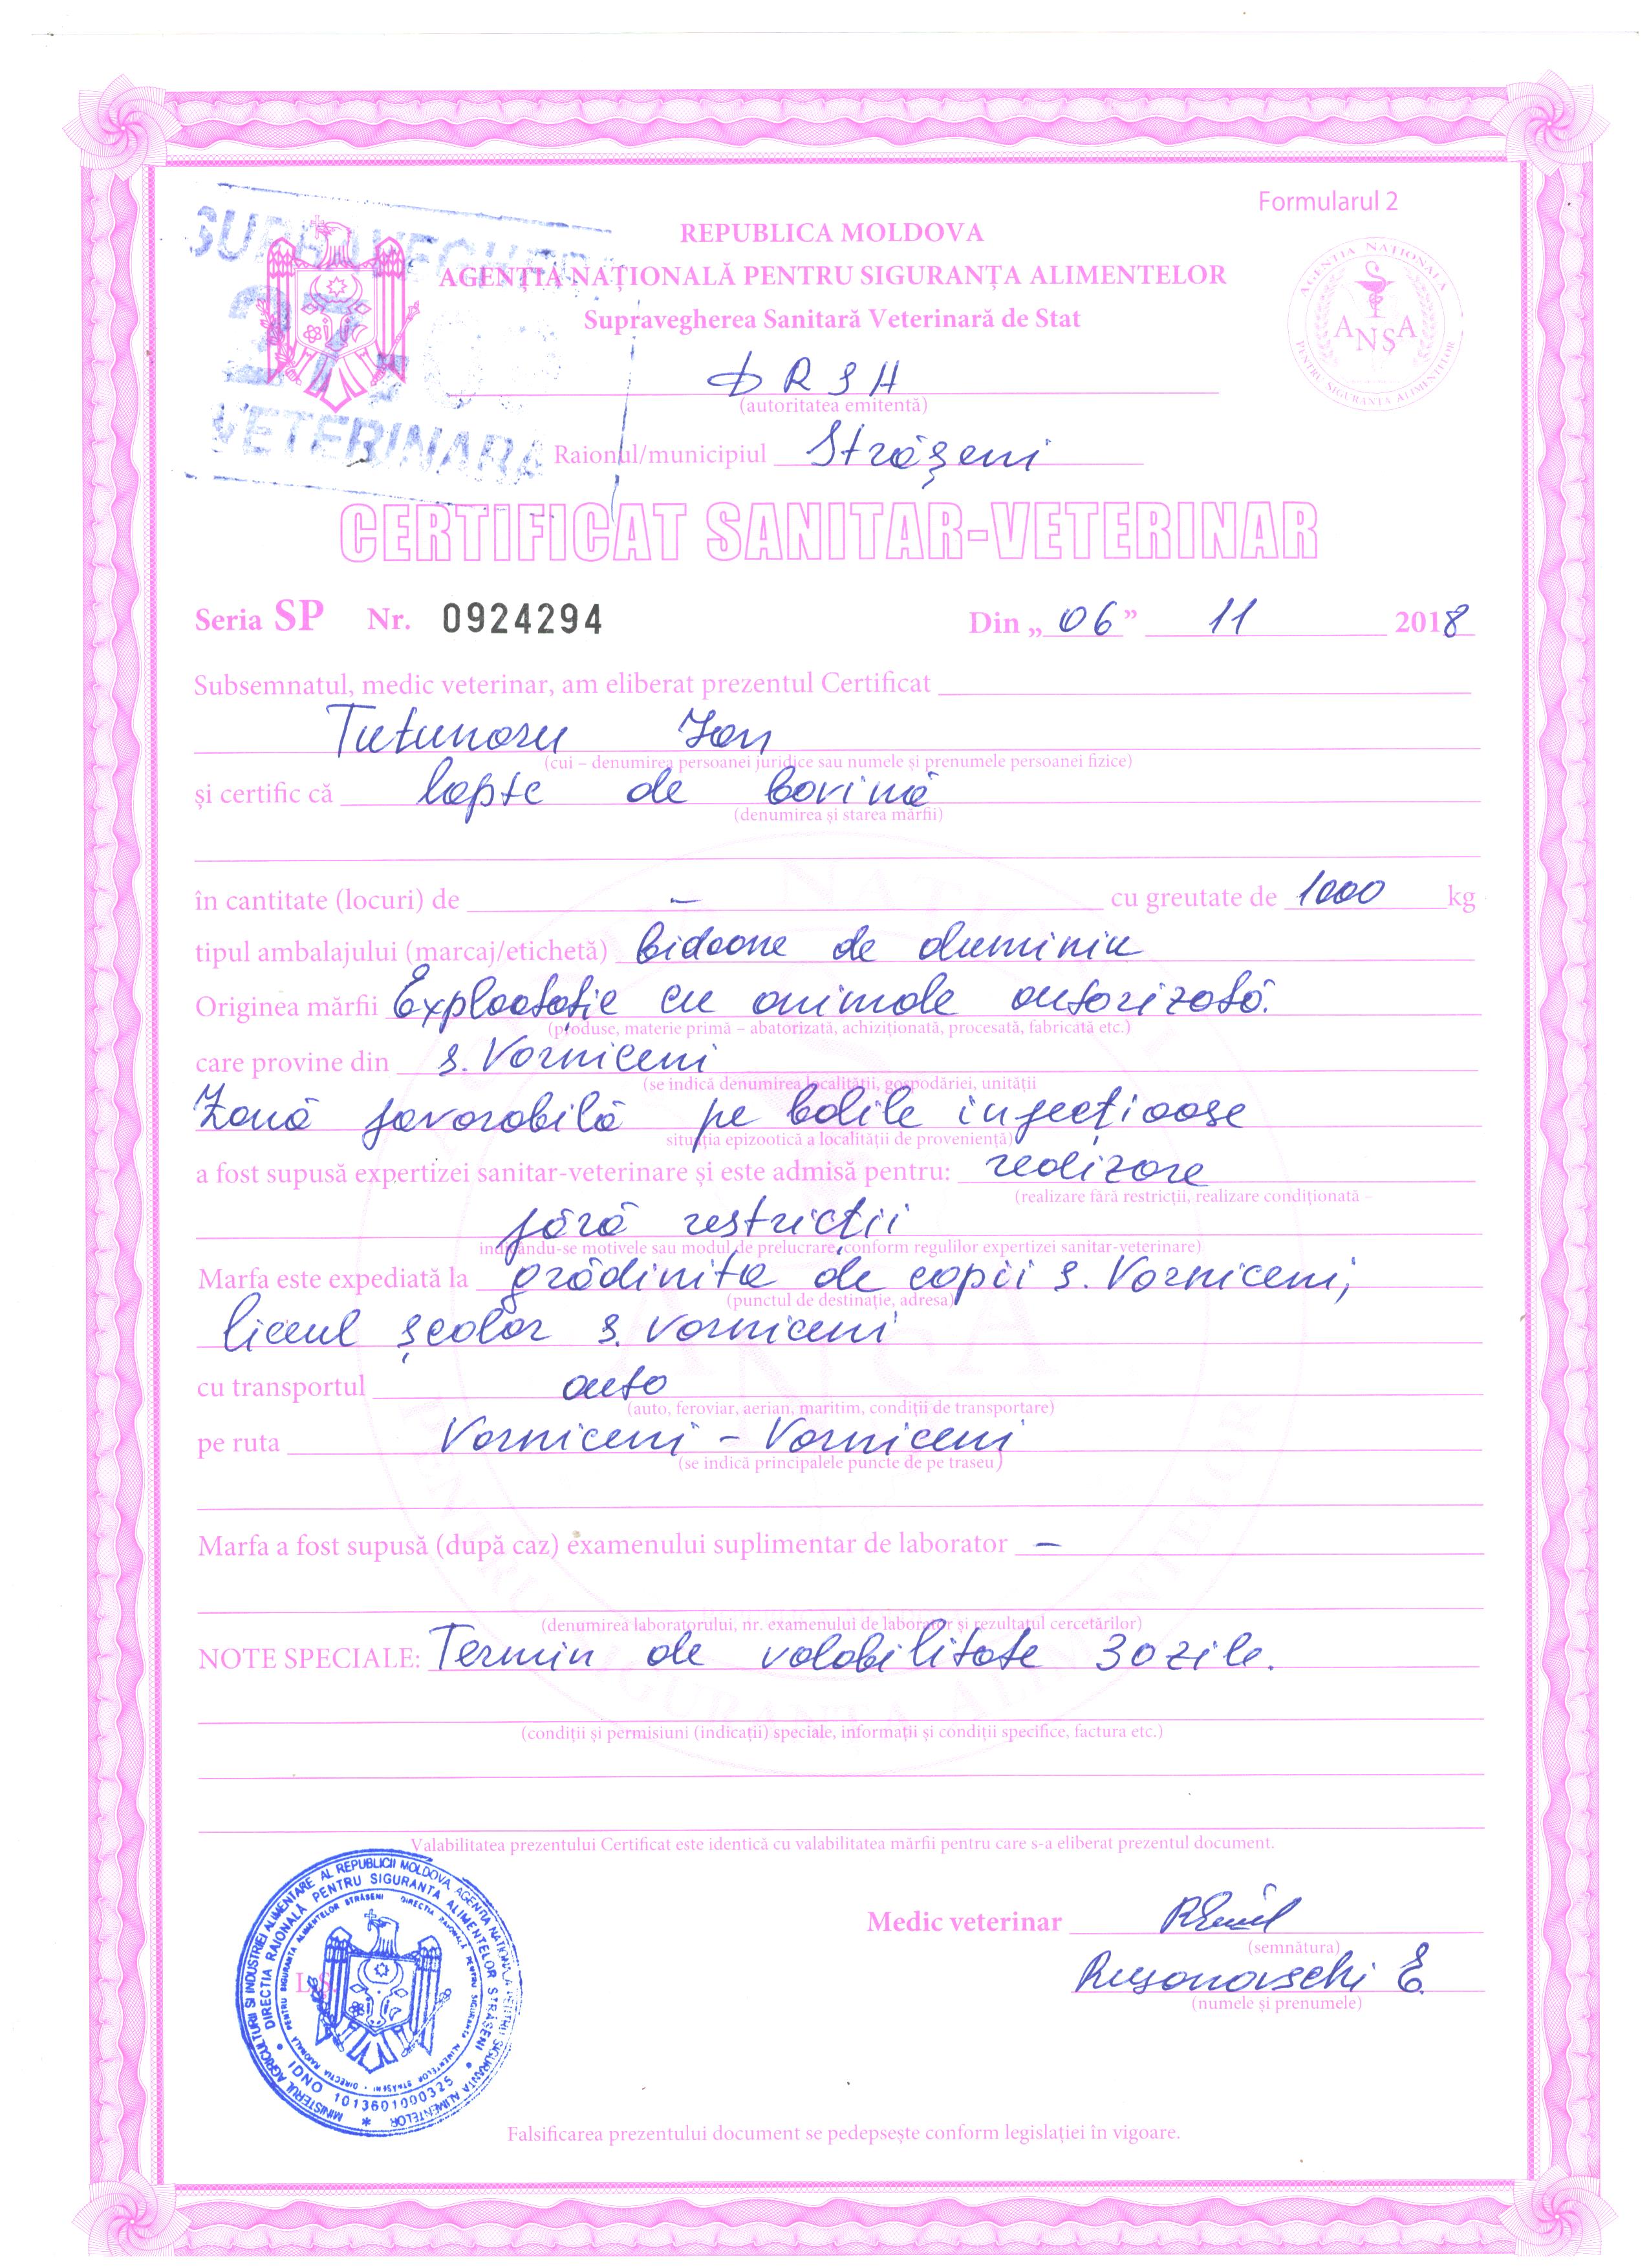 Formularul 2
REPUBLICA MOLDOVA
AGENȚIA NAȚIONALĂ PENTRU SIGURANȚA ALIMENTELOR
Supravegherea Sanitară Veterinară de Stat
AGENȚIA NAȚIONALĂ PENTRU SIGURANȚA ALIMENTELOR
ANȘA
SUPRAVEGHERE
27
VETERINARĂ
DRSA
(autoritatea emitentă)
Raionul/municipiul Strășeni
CERTIFICAT SANITAR-VETERINAR
Seria SP Nr. 0924294 Din „06” 11 2018
Subsemnatul, medic veterinar, am eliberat prezentul Certificat
Tutunaru Ion
(cui – denumirea persoanei juridice sau numele și prenumele persoanei fizice)
și certific că lapte de bovină
(denumirea și starea mărfii)
în cantitate (locuri) de – cu greutate de 1000 kg
tipul ambalajului (marcaj/etichetă) bidoane de aluminiu
Originea mărfii Exploatație cu animale autorizată.
(produse, materie primă – abatorizată, achiziționată, procesată, fabricată etc.)
care provine din s. Vorniceni
(se indică denumirea localității, gospodăriei, unității
Zonă favorabilă pe bolile infecțioase
situația epizootică a localității de proveniență)
a fost supusă expertizei sanitar-veterinare și este admisă pentru: realizare
(realizare fără restricții, realizare condiționată –
fără restricții
indicându-se motivele sau modul de prelucrare, conform regulilor expertizei sanitar-veterinare)
Marfa este expediată la grădinița de copii s. Vorniceni;
(punctul de destinație, adresa)
liceul școlar s. Vorniceni
cu transportul auto
(auto, feroviar, aerian, maritim, condiții de transportare)
pe ruta Vorniceni – Vorniceni
(se indică principalele puncte de pe traseu)
Marfa a fost supusă (după caz) examenului suplimentar de laborator –
(denumirea laboratorului, nr. examenului de laborator și rezultatul cercetărilor)
NOTE SPECIALE: Termin de valabilitate 30 zile.
(condiții și permisiuni (indicații) speciale, informații și condiții specifice, factura etc.)
Valabilitatea prezentului Certificat este identică cu valabilitatea mărfii pentru care s-a eliberat prezentul document.
Medic veterinar
(semnătura)
Rusanovschi E.
(numele și prenumele)
L.Ș.
MINISTERUL AGRICULTURII SI INDUSTRIEI ALIMENTARE AL REPUBLICII MOLDOVA AGENTIA NATIONALA PENTRU SIGURANTA ALIMENTELOR
DIRECTIA RAIONALĂ PENTRU SIGURANTA ALIMENTELOR STRĂSENI
IDNO 1013601000325
Falsificarea prezentului document se pedepsește conform legislației în vigoare.